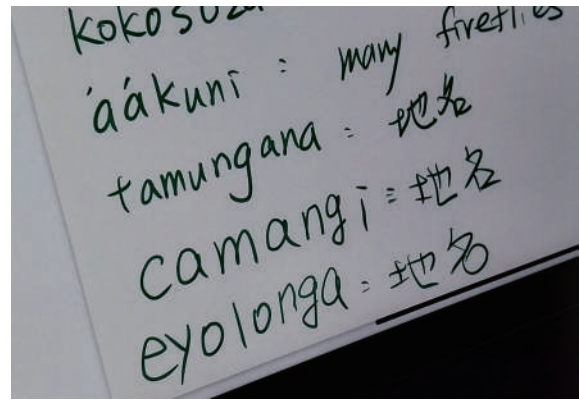 áákuni : many fireflies
tamungana : 地名
camangi : 地名
eyolonga : 地名